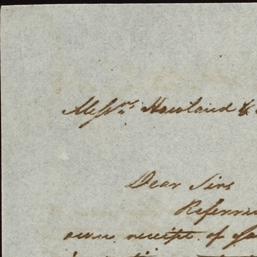 Messrs. Howland &
Dear Sirs
Referri
receipt of